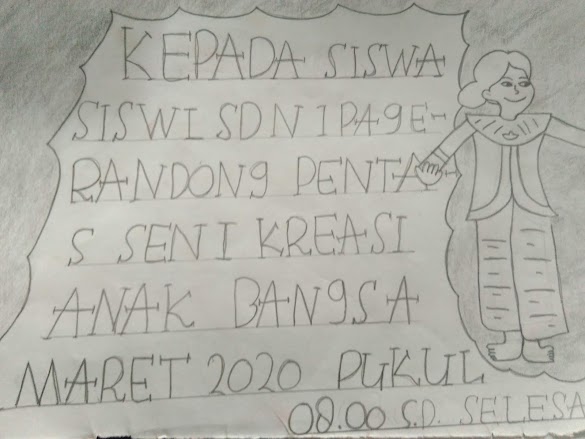 KEPADA SISWA
SISWI SDN 1 PAGE-
RANDONG PENTA
S SENI KREASI
ANAK BANGSA
MARET 2020 PUKUL
08.00 S.D. SELESA